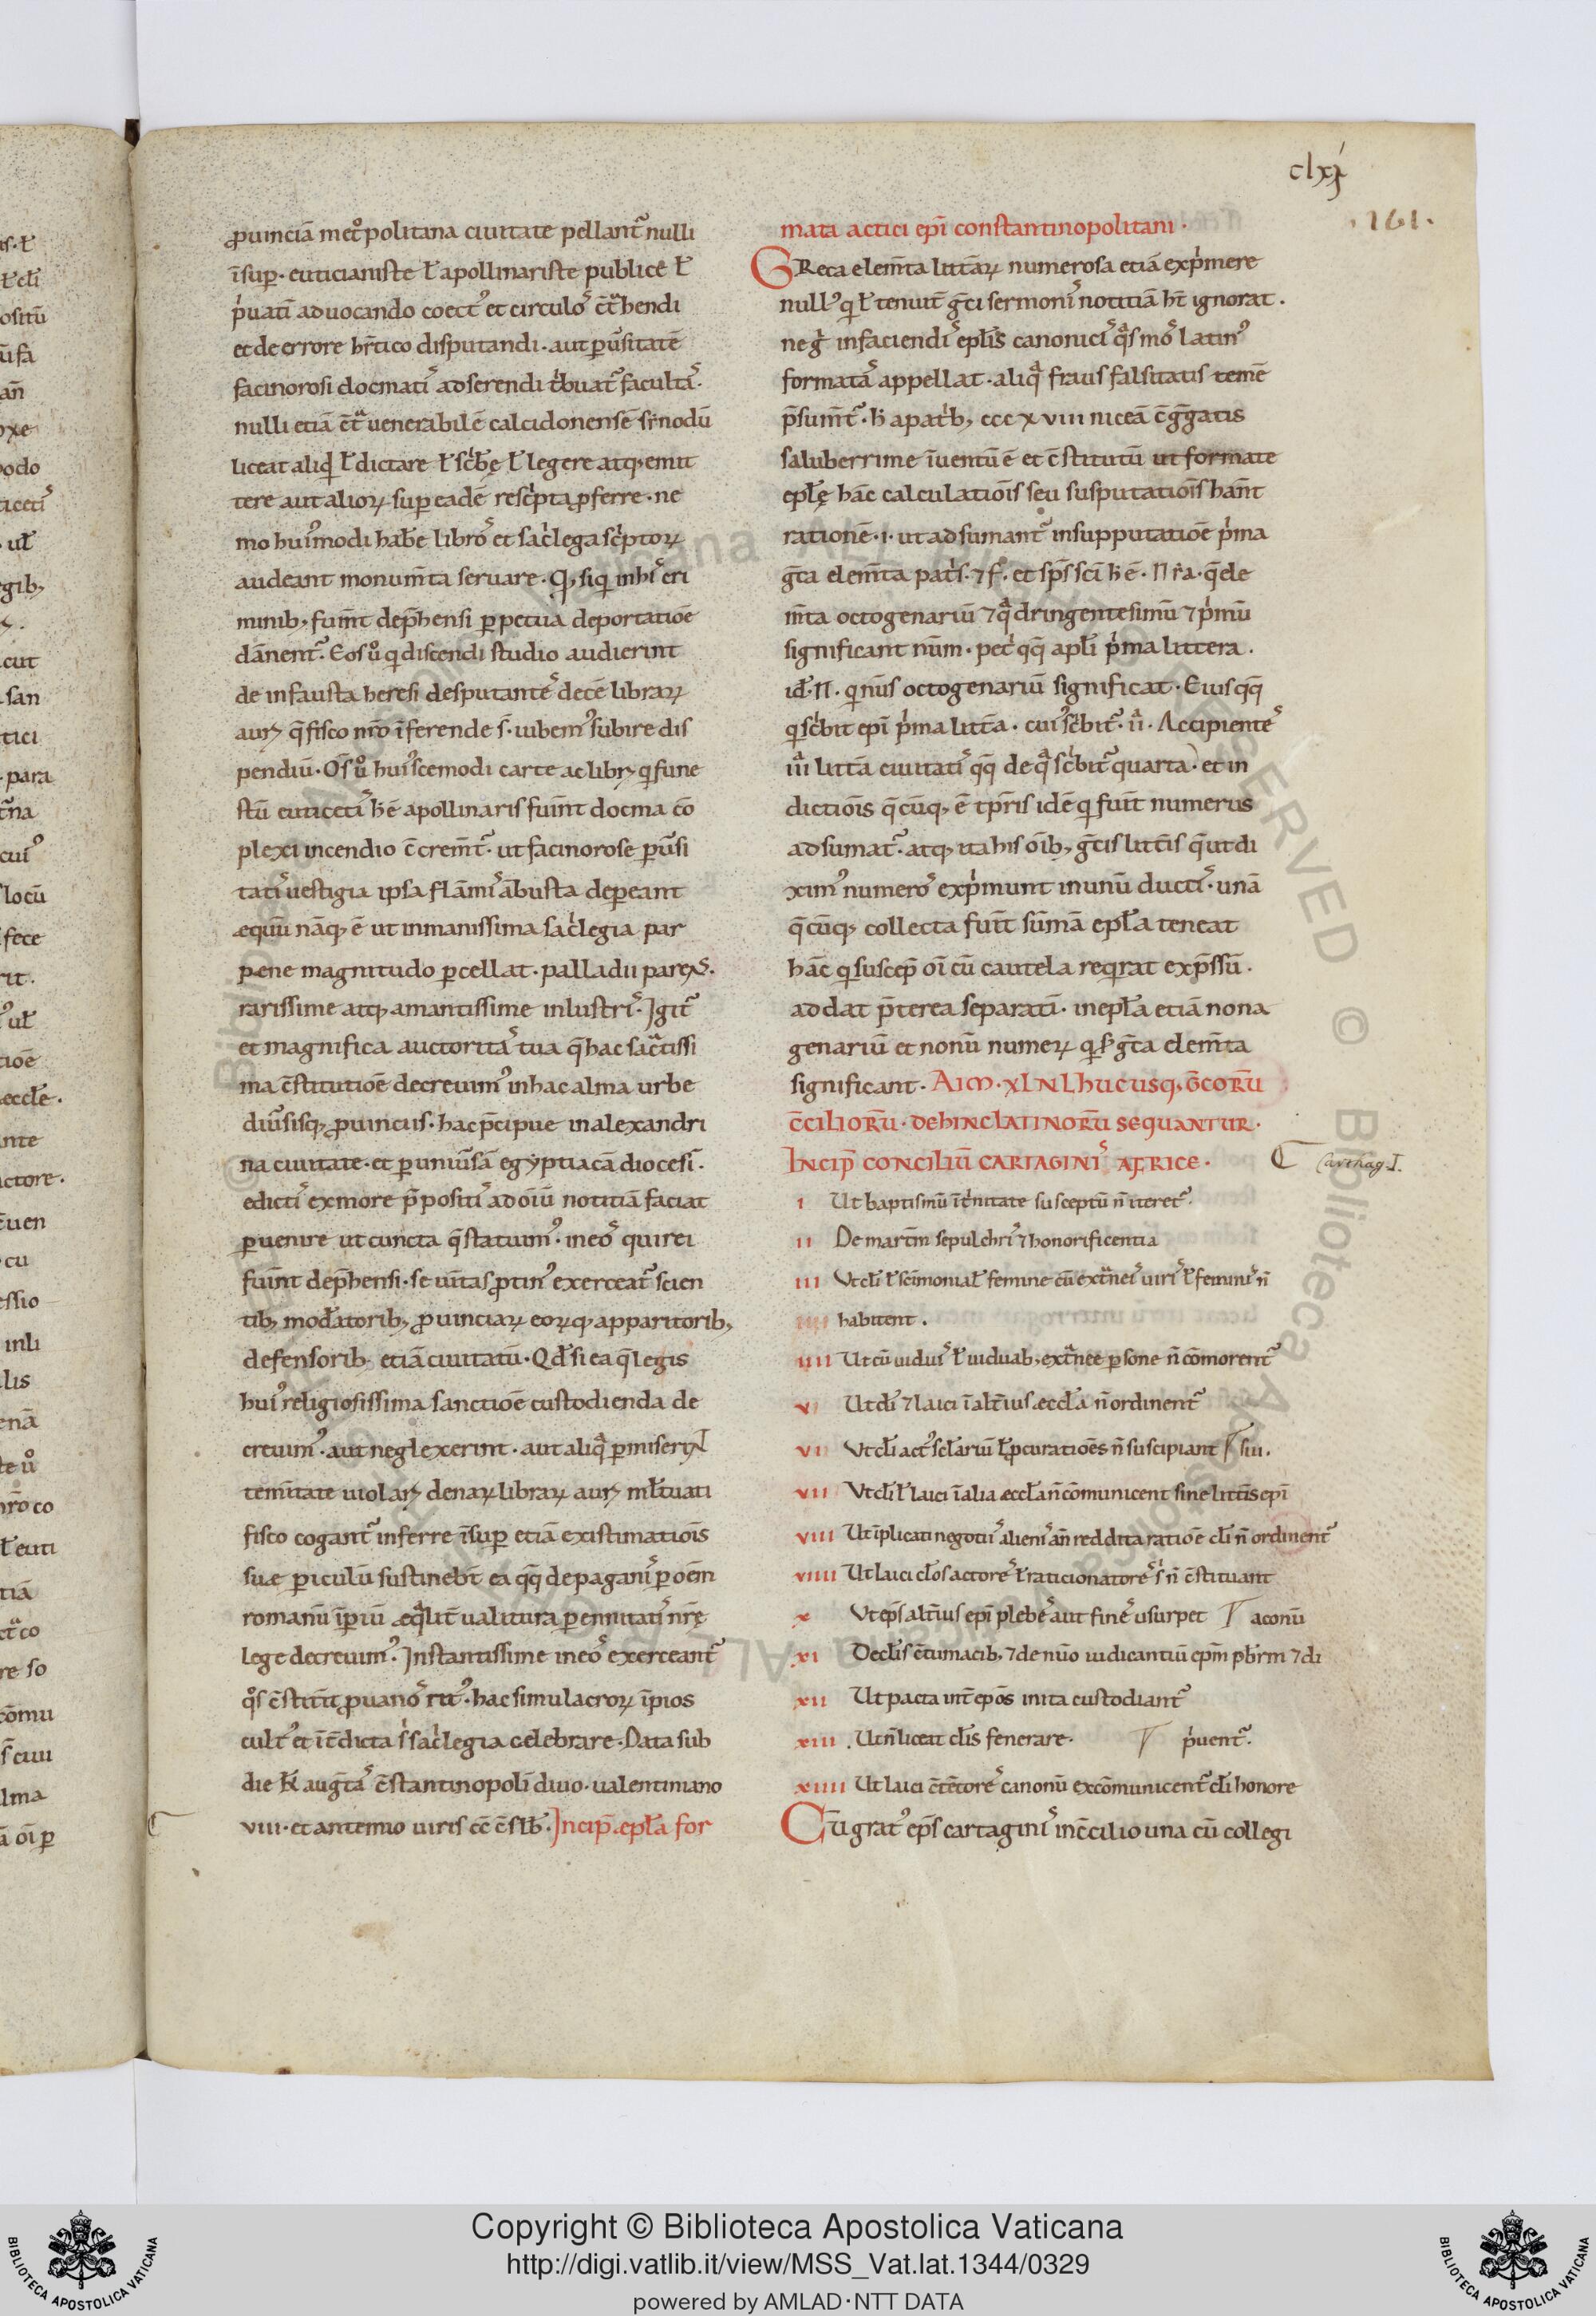 clxj
161.
ꝓuinciā met͛politana ciuitate pellant᷑ nulli
īsuꝑ· euticianiste ł apollinariste publice ł
p͛uati aduocando coect᷒ et circulos c͛tᷓhendi
et de errore hr̄tico disputandi· aut ꝑūsitatē
facinorosi docmatis adserendi t͛buat᷑ facultas·
nulli etiā c̄tᷓ uenerabilē calcidonensē sẏnodū
liceat aliqd ł dictare ł sc͛bę ł legere atqꝫ emit
tere aut alioꝝ suꝑ eadē resc͛pta ꝓferre· ne
mo hui᷒modi habe libros et sac͛lega sc͛ptoꝝ
audeant monum̄ta seruare· Qꝫ siq̇ in his cri
minibꝫ fuīnt dep̄hensi ꝑpetua deportatiōe
dānent᷑· Eos ů q̇ discendi studio audierint
de infausta heresi desputantes decē libraꝝ
auri q̄ fisco nr̄o īferende s̄· iubem᷒ subire dis
pendiū· Os̄ ů hui᷒scemodi carte ac libri q̇ fune
stū euticetis h̄ ē apollinaris fuīnt docma cō
plexi incendio c̄crem̄t᷑· ut facinorose ꝑūsi
tatis uestigia ipsa flāmis ābusta deꝑeant
æquū nāqꝫ ē ut inmanissima sac͛legia par
pene magnitudo ꝑcellat· palladii parens·
rarissime atqꝫ amantissime inlustris· Igit᷑
et magnifica auctoritas tua q̄ hac sac̄tissi
ma c̄stitutiōe decreuim᷒ in hac alma urbe
diūsisqꝫ ꝓuinciis· hac p̄cipue in alexandri
na ciuitate· et ꝑ uniūsā egẏptiacā diocesi·
edictis ex more p̄positis ad oīū notitiā faciat
ꝑuenire ut cuncta q̄ statuim᷒· in eos qui rei
fuīnt dep̄hensi· seuitas ꝓtin᷒ exerceat᷑ scien
tibꝫ mod̄atoribꝫ ꝓuinciaꝝ eoꝝqꝫ apparitoribꝫ
defensorib· etiā ciuitatū· Qd̄ si ea q̄ legis
hui᷒ religiosissima sanctiōe custodienda de
creuim᷒· aut neglexerint· aut aliqᷓ ꝑmiserint
tem̄itate uiolari denaꝝ libraꝝ auri ml̄tuati
fisco cogant᷑ inferre īsuꝑ etiā existimatiōis
suæ ꝑiculū sustinebt̄ ea qq̄ de paganis ꝑ oēm
romanū īꝑiū æqᷓlit̄ ualitura ꝑennitatis nr̄ę
lege decreuim᷒· Instantissime in eos exerceant᷑
qͦs c̄stiīt̄ ꝓuanos rit᷒· hac simulacroꝝ īpios
cult᷒ et īt̄dicta s͛ sac͛legia celebrare· Data sub
die k̄l augtas c̄stantinopoli diuo· ualentiniano
viii· et antemio uiris cc̄ c̄slb̄· Incip̄· epl̄a for
mata actici epī constantinopolitani·
GReca elem̄ta litt̄aꝝ numerosa etiā exp͛mere
null᷒ q̇ ł tenuit̄ gc̄i sermonis notitiā ht̄ ignorat·
neg͛ in faciendis epl̄is canonicis qᷓs mos latin᷒
formatas appellat· aliqᷓ fraus falsitatis temē
p̄sum̄t᷑· h̄ a pat͛bꝫ ccc xviii niceā c̄gḡgatis
saluberrime īuentū ē et c̄stitutū ut formate
epl̄ę hāc calculatiōis seu susputatiōis hānt
rationē· i· ut adsumant᷑ in supputatiōe p͛ma
gt̄a elem̄ta pat͛s· ⁊ f͛· et sp̄s sci h̄ ē· Π ẏ· a· q̄ ele
m̄ta octogenariū ⁊ qᷓdringentesimū ⁊ p͛mū
significant nūm· pet͛ qq̄ apl̄i p͛ma littera·
id̄· Π· q̇ nūs octogenariū significat· Eius qq̄
q̇ sc͛bit epī p͛ma litt̄a· cui᷒ sc͛bit᷑· iiᷓ· Accipientes
iiiᷓ litt̄a ciuitatis qq̄ de qᷓ sc͛bit᷑ quarta· et in
dictiōis q̄cūqꝫ ē tp̄ris idē q̇ fuit̄ numerus
adsumat᷑· atqꝫ ita his oībꝫ gc̄is litt̄is q̄ ut di
xim᷒ numeros exp͛munt in unū ductis· unā
q̄cūqꝫ collecta fuit̄ sūmā epl̄a teneat
hāc q̇ suscep̄ oī cū cautela req̇rat exp̄ssū·
addat p̄terea separati· in epl̄a etiā nona
genariū et nonū numeꝝ q̇ s̄ gt̄a elem̄ta
significant· AIM· XLNL hucusqꝫ GCORŪ
C̄CILIORŪ· DEHINC LATINORŪ SEQUANTUR·
INCIP̄ CONCILIŪ CARTAGINIS AFRICE·
Carthag. I.
i Ut baptismū ī t͛nitate susceptū n̄ iteret᷑·
ii De martm̄ sepulchris ⁊ honorificentia
iii Vt cl̄i ł sc̄imonial̄ femine cū extᷓneis uiris ł feminis n̄
habitent·
iiii Ut cū uiduis ł uiduabꝫ extᷓnee ꝑsone n̄ cōmorent᷑
v Ut cl̄i ⁊ laici ī alt̄ius æccl̄a n̄ ordinent᷑
vi Vt cl̄i act᷒ sclariū ł ꝓcuratiōes n̄ suscipiant sui·
vii Vt cl̄i ł laici ī alia æccl̄a n̄ cōmunicent sine litt̄is epī
viii Ut īplicati negotiis alienis an̄ reddita ratiōe cl̄i n̄ ordinent᷑
viiii Ut laici cl̄os actores ł raticionatores s͛ n̄ c̄stituant
x Vt ep̄s alt̄ius epī plebes aut fines usurpet aconū
xi De cl̄is c̄tumacibꝫ ⁊ de nūo iudicantiū ep̄m pb̄rm ⁊ di
xii Ut pacta int̄ ep̄os inita custodiant᷑
xiii Ut n̄ liceat cl̄is fenerare· p͛uent᷑·
xiiii Ut laici c̄tētores canonū excōmunicent᷑ cl̄i honore
CŪ grat᷒ ep̄s cartaginis in c̄cilio una cū collegi
Copyright © Biblioteca Apostolica Vaticana
http://digi.vatlib.it/view/MSS_Vat.lat.1344/0329
powered by AMLAD·NTT DATA
BIBLIOTECA APOSTOLICA VATICANA
BIBLIOTECA APOSTOLICA VATICANA